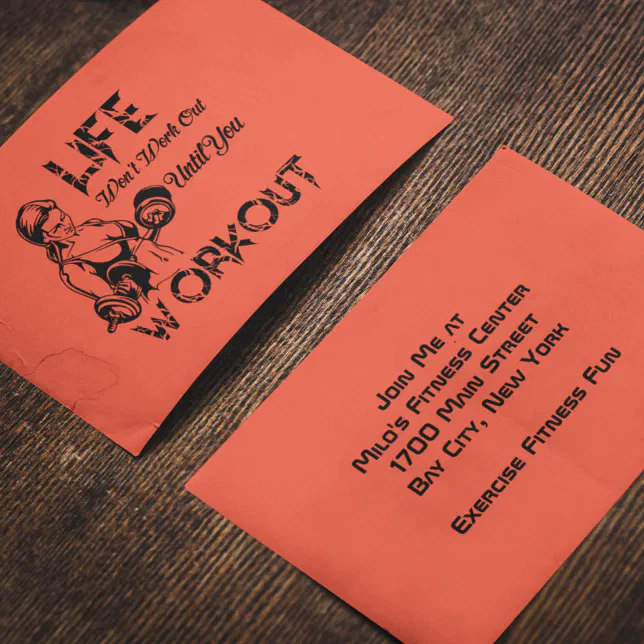 LIFE
Won't Work Out
Until You
WORKOUT
Join Me at
Milo's Fitness Center
1700 Main Street
Bay City, New York
Exercise Fitness Fun